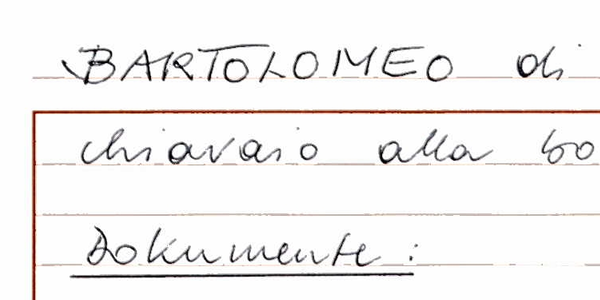 BARTOLOMEO di
chiavaio alla bo
Dokumente: